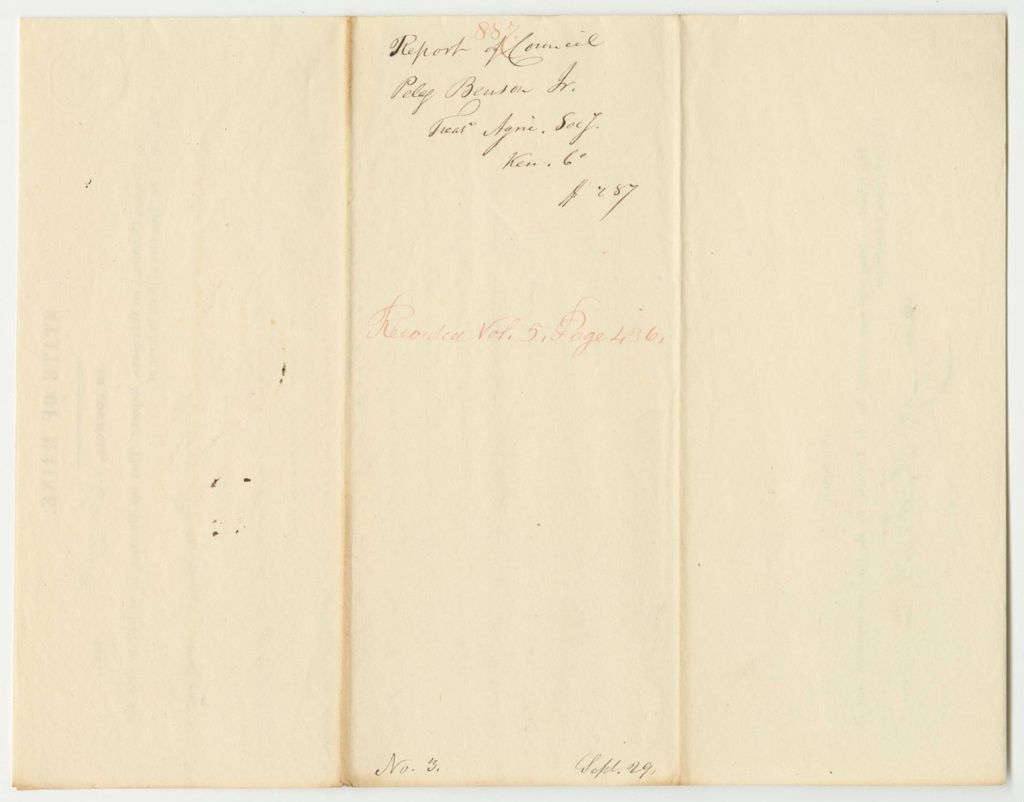 887
Report of Council
Peleg Benson Jr.
Treasr Agric. Socy.
Ken. Co
$ 287
Recorded Vol. 5, Page 436,
No. 3.
Sept. 29,
STATE OF MAINE